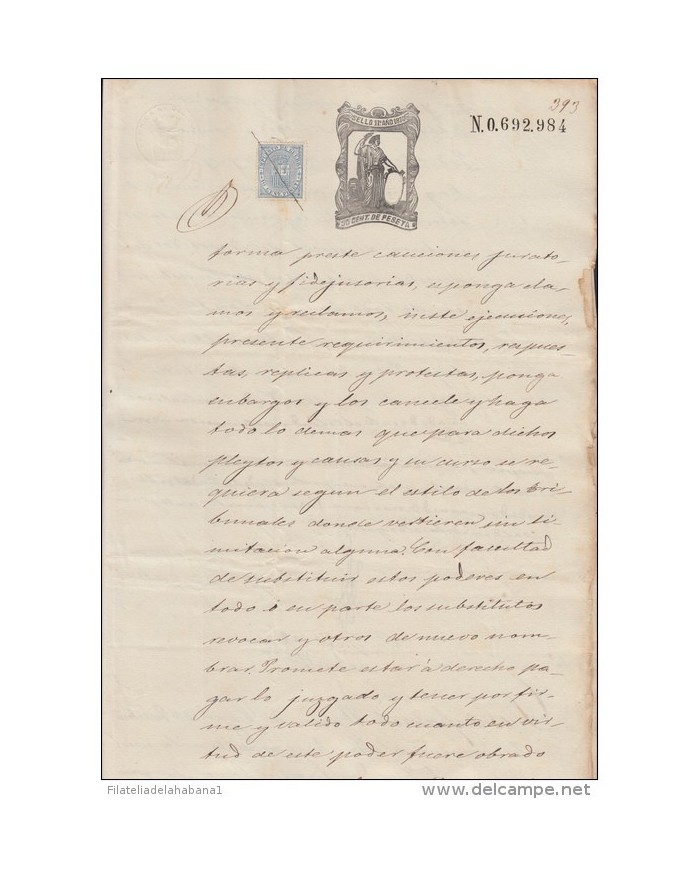 393
N.0.692.984
SELLO 11º AÑO 18
50 CENT. DE PESETA
forma preste cauciones jurato-
rias y fidejusorias, esponga cla-
mos y reclamos, inste ejecuciones,
presente requirimientos, respues-
tas, replicas y protestas, ponga
embargos y los cancele y haga
todo lo demas que para dichos
pleytos y causas y su curso se re-
quiera segun el estilo de los tri-
bunales donde vertieren sin li-
mitacion alguna. Con facultad
de substituir estos poderes en
todo ó en parte los substitutos
revocar y otros de nuevo nom-
brar. Promete estar á derecho pa-
gar lo juzgado y tener por fir-
me y valido todo cuanto en vir-
tud de este poder fuere obrado
Filateliadelahabana1
www.delcampe.net